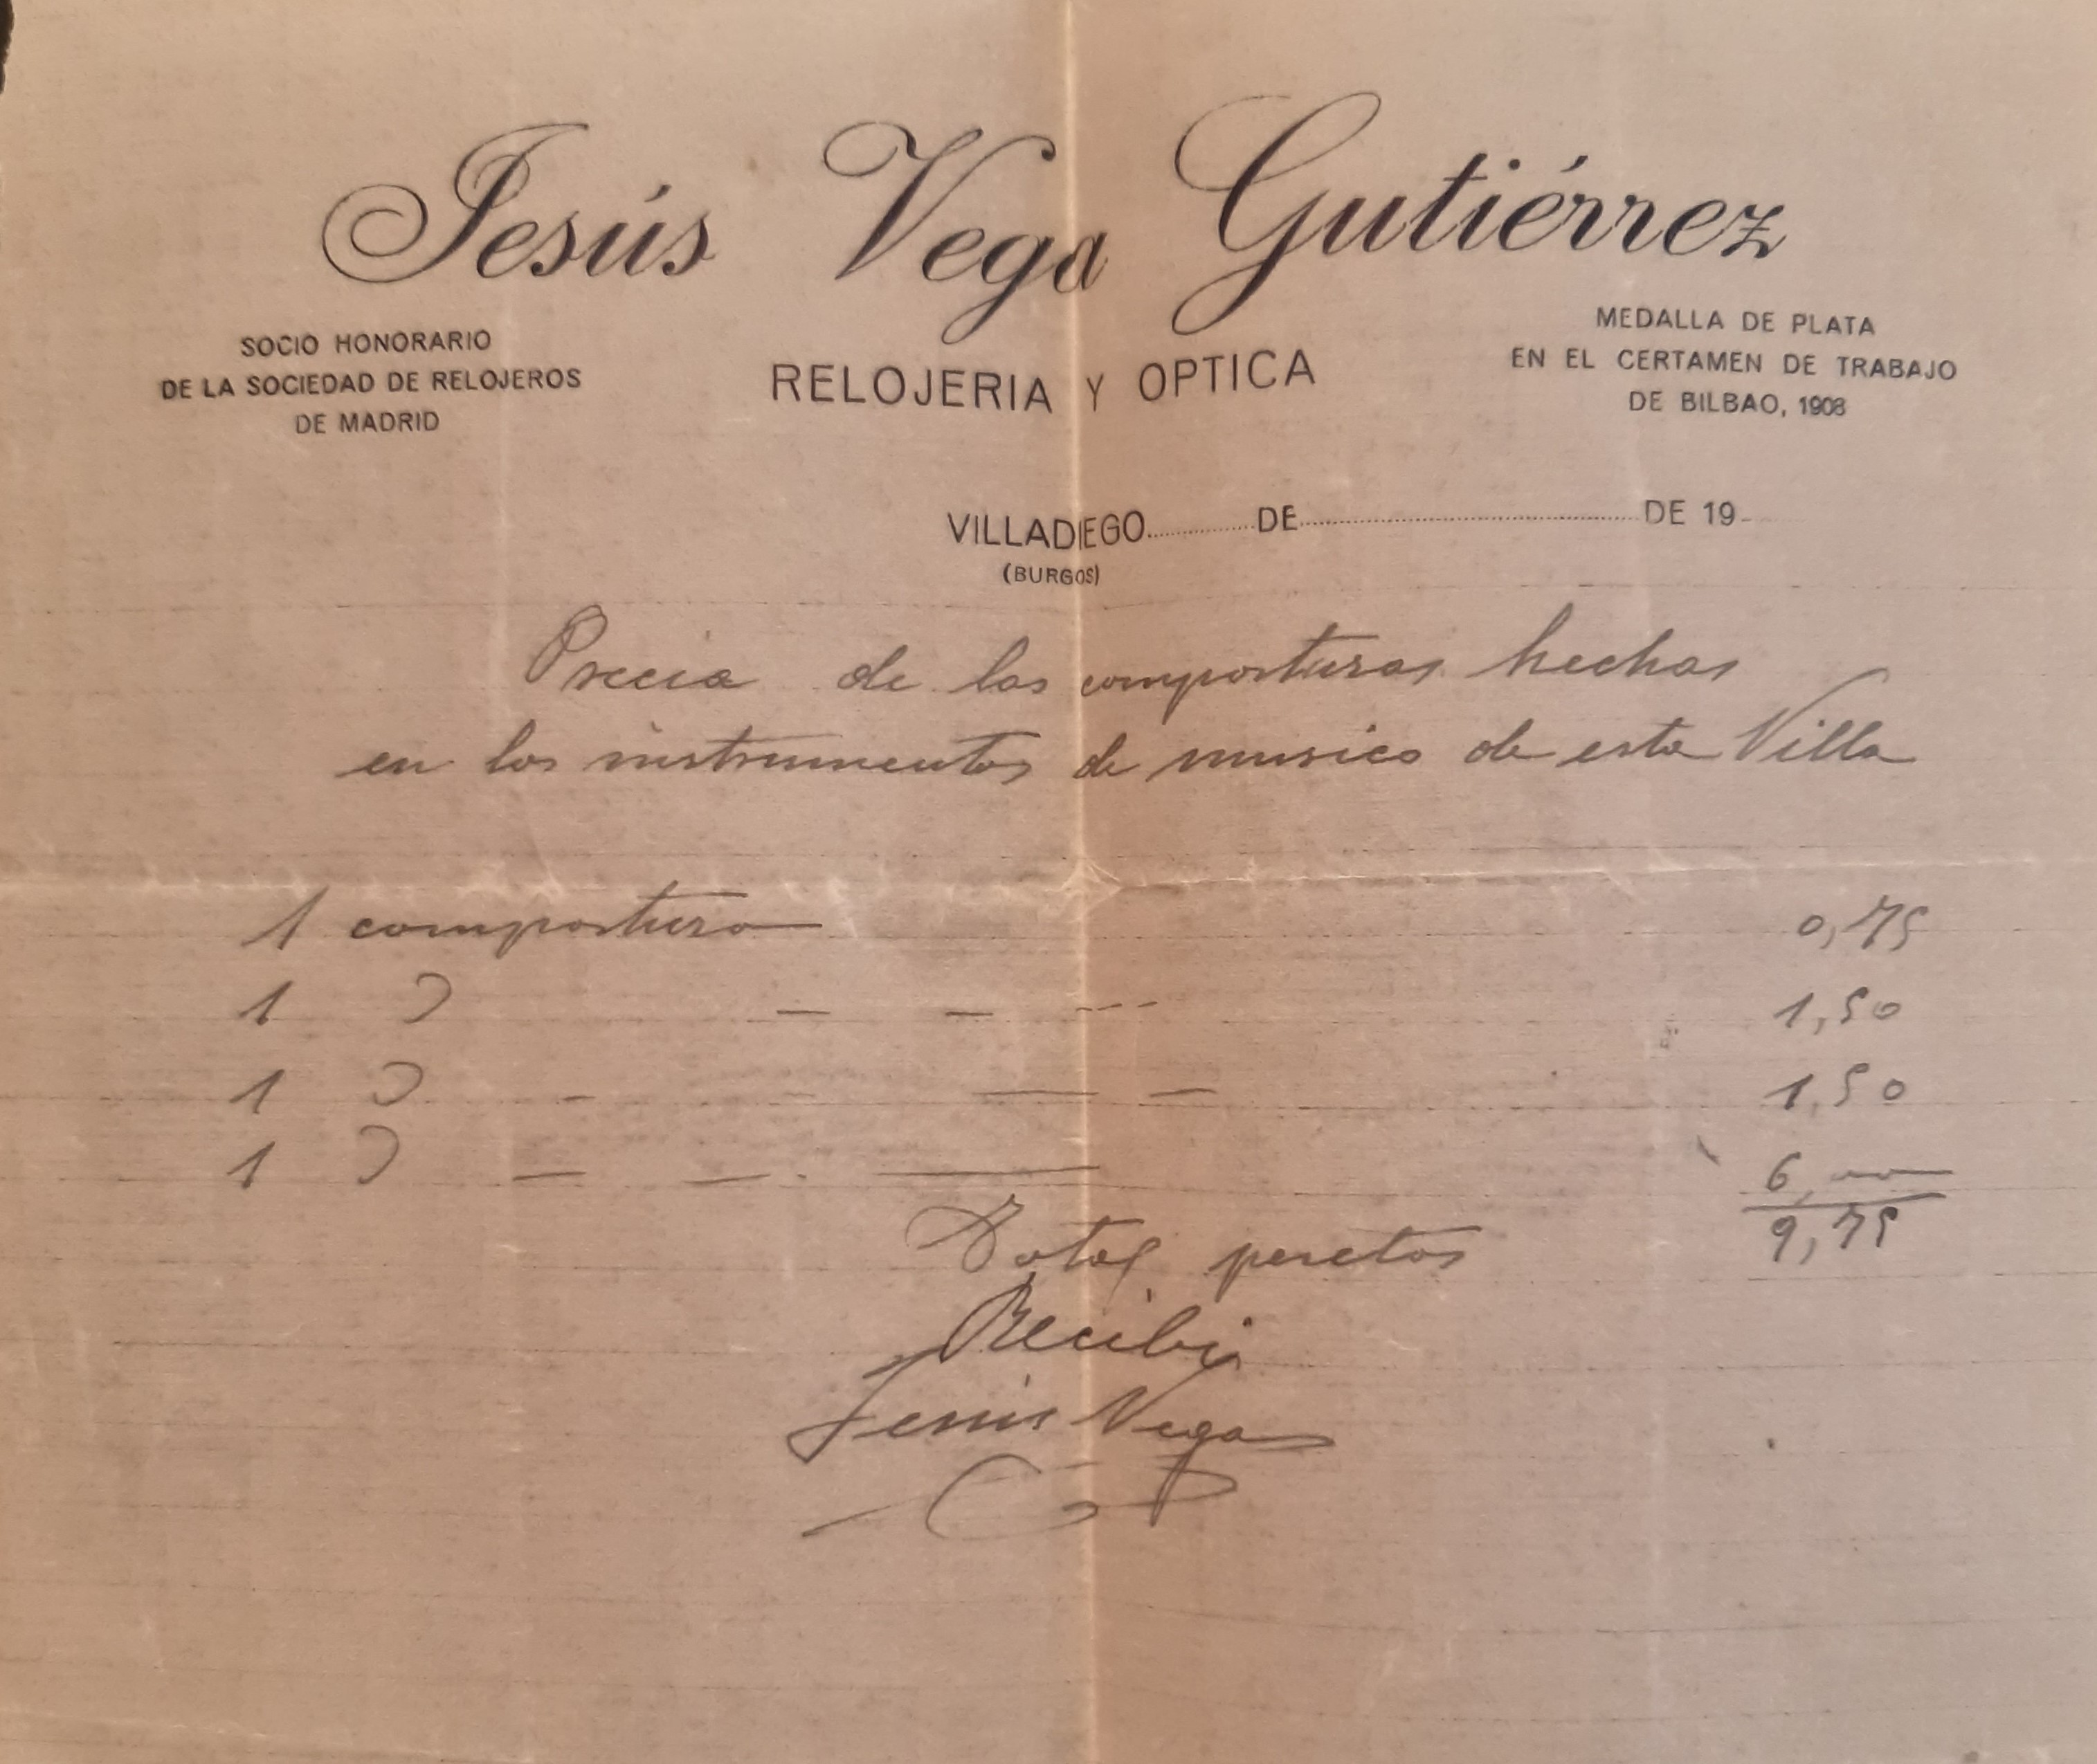 Jesús Vega Gutiérrez
SOCIO HONORARIO
DE LA SOCIEDAD DE RELOJEROS
DE MADRID
RELOJERIA Y OPTICA
MEDALLA DE PLATA
EN EL CERTAMEN DE TRABAJO
DE BILBAO, 1908
VILLADIEGO DE DE 19
(BURGOS)
Precio de las composturas hechas
en los instrumentos de musica de esta Villa
1 compostura 0,75
1 " 1,50
1 " 1,50
1 " 6,00
Total pesetas 9,75
Recibi
Jesús Vega